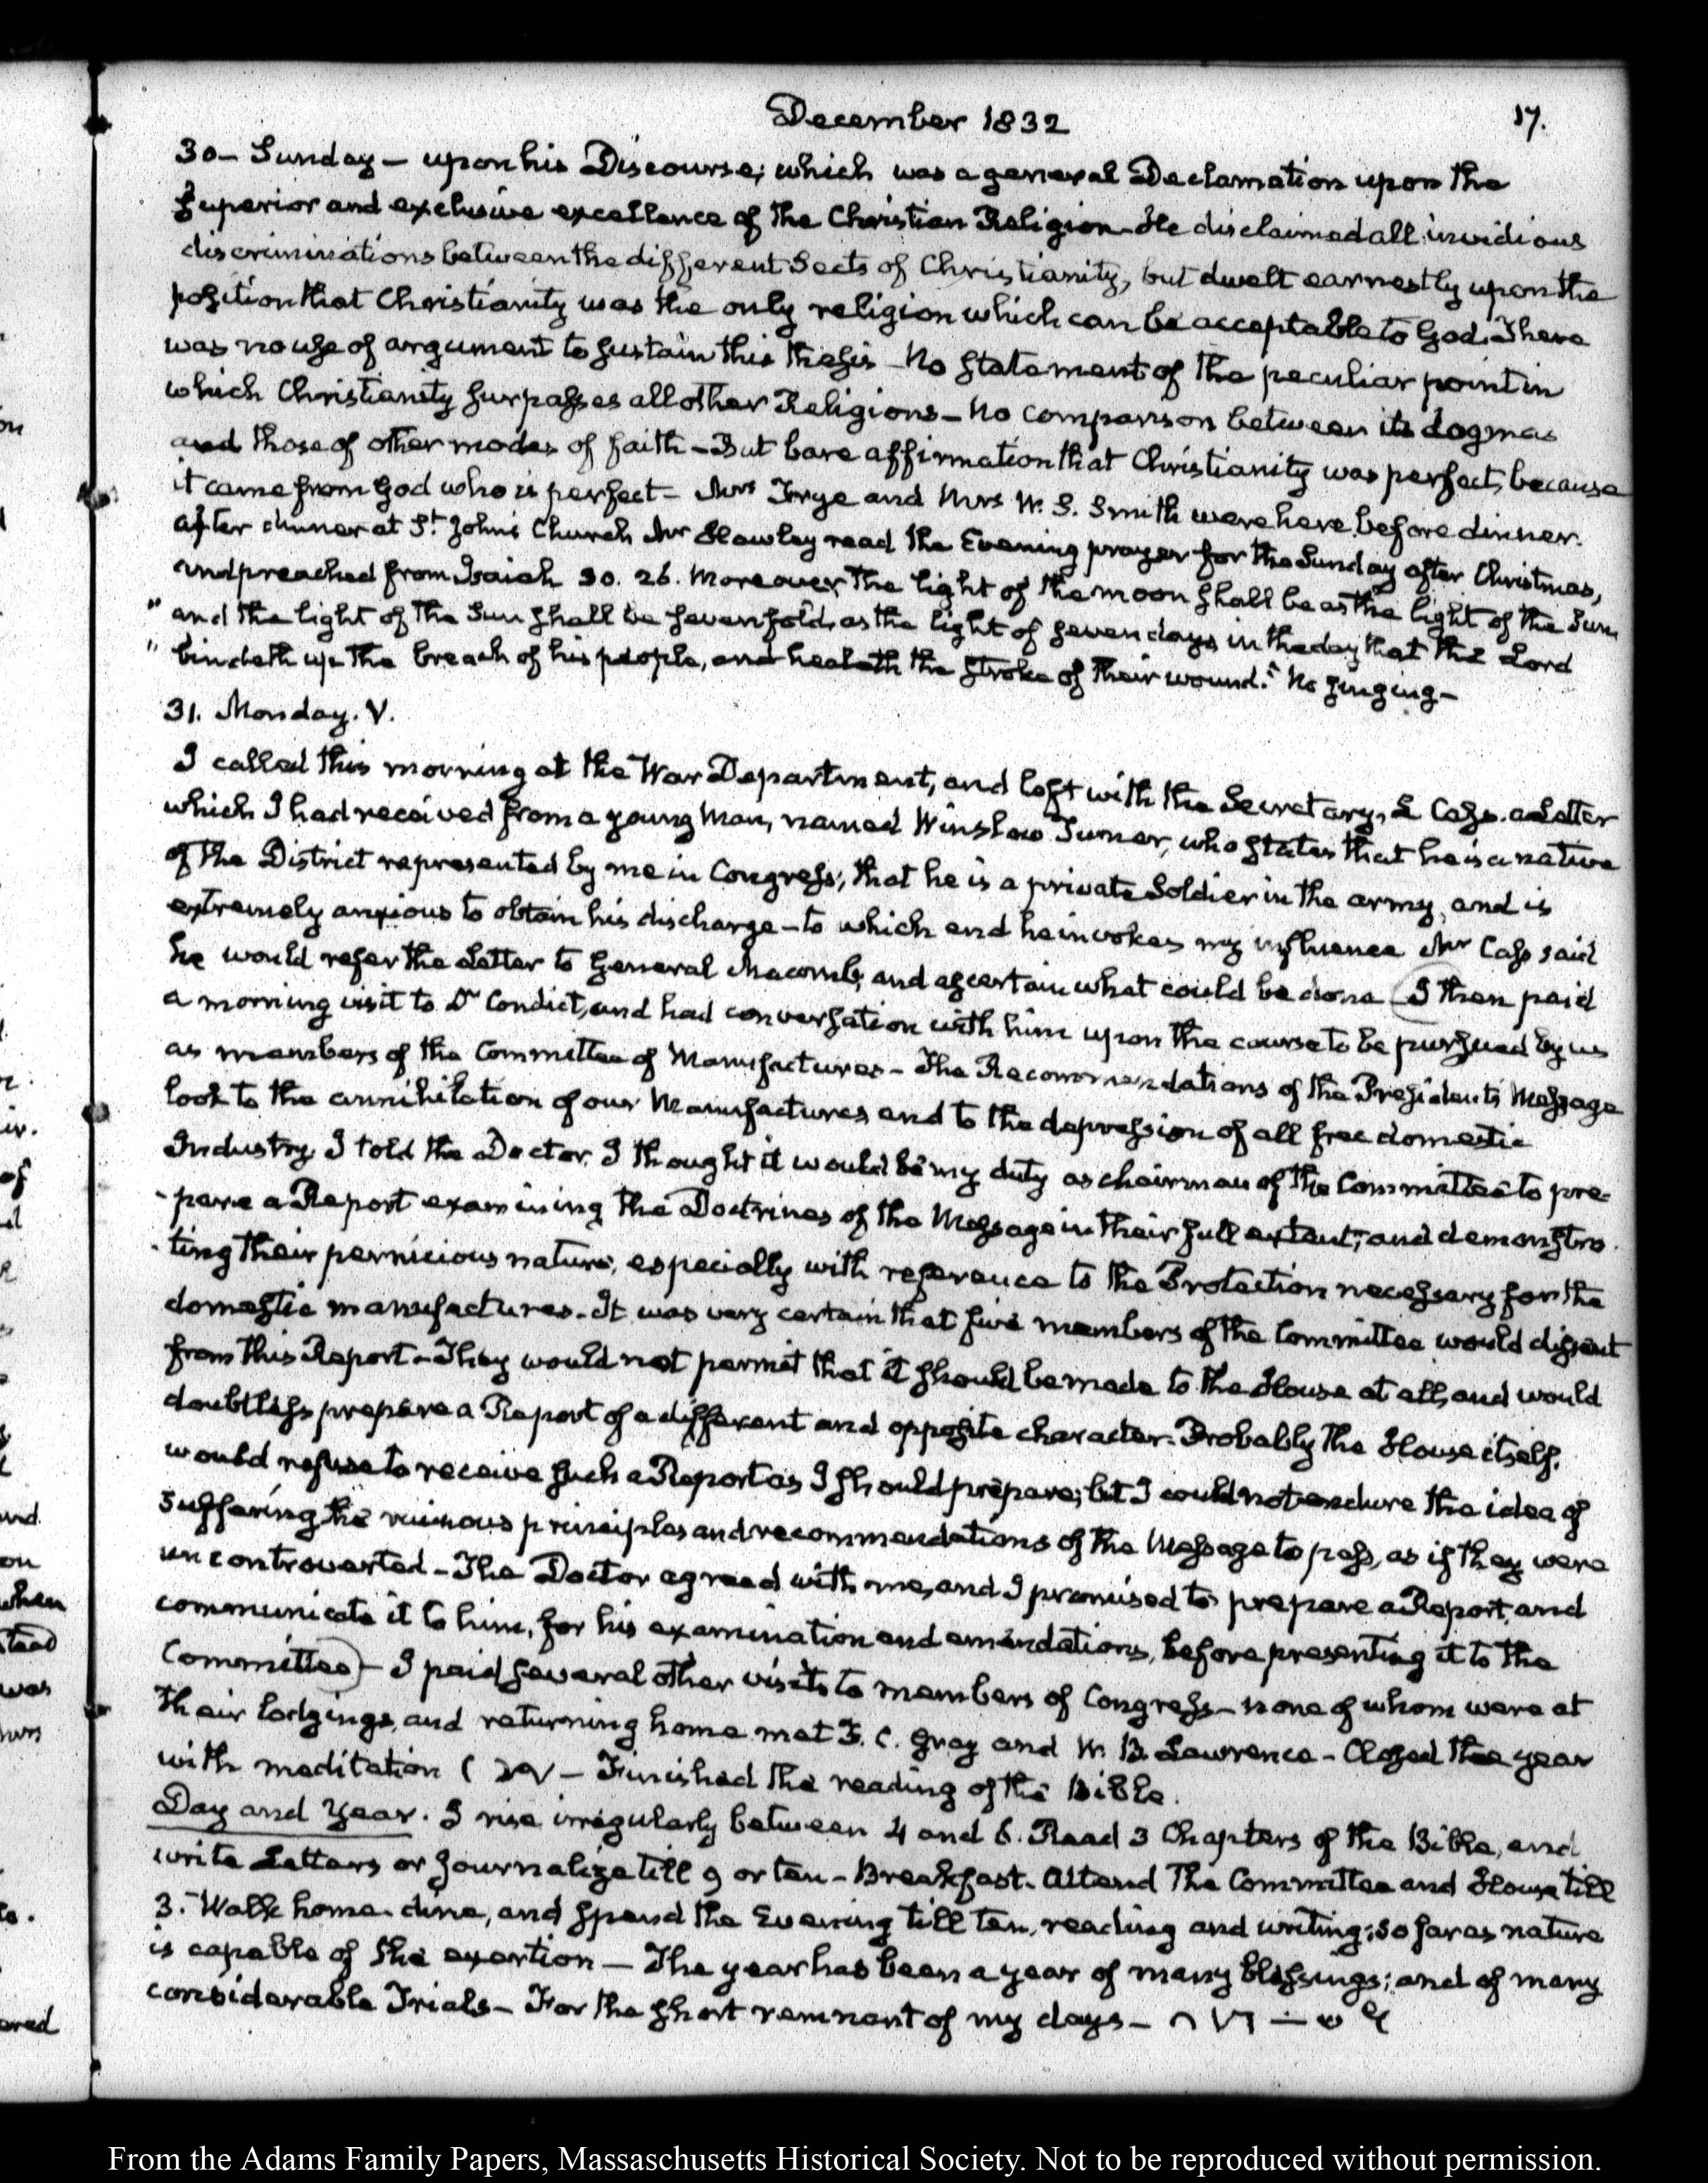 December 1832
17.
30 – Sunday – upon his Discourse; which was a general Declamation upon the
Superior and exclusive excellence of the Christian Religion – He disclaimed all invidious
discriminations between the different Sects of Christianity, but dwelt earnestly upon the
position that Christianity was the only religion which can be acceptable to God. There
was no use of argument to sustain this thesis – No statement of the peculiar point in
which Christianity surpasses all other Religions – No comparison between its dogmas
and those of other modes of faith – But bare affirmation that Christianity was perfect, because
it came from God who is perfect – Mrs Frye and Mrs W. S. Smith were here before dinner.
after dinner at St. John's Church Mr Hawley read the Evening prayer for the Sunday after Christmas,
and preached from Isaiah 30. 26. Moreover the light of the moon shall be as the light of the Sun,
" and the light of the Sun shall be sevenfold, as the light of seven days, in the day that the Lord
" bindeth up the breach of his people, and healeth the stroke of their wound." No singing –
31. Monday. V.
I called this morning at the War Department, and left with the Secretary, L Cass. a Letter
which I had received from a young Man, named Winslow Turner, who states that he is a native
of the District represented by me in Congress, that he is a private Soldier in the army, and is
extremely anxious to obtain his discharge – to which end he invokes my influence Mr Cass said
he would refer the Letter to General Macomb, and ascertain what could be done – I then paid
a morning visit to Dr Condict, and had conversation with him upon the course to be pursued by us
as members of the Committee of Manufactures – The Recommendations of the President's Message
look to the annihilation of our Manufactures and to the depression of all free domestic
Industry. I told the Doctor I thought it would be my duty as chairman of the Committee to pre-
-pare a Report examining the Doctrines of the Message in their full extent, and demonstra-
-ting their pernicious nature, especially with reference to the Protection necessary for the
domestic manufactures. It was very certain that five members of the Committee would dissent
from this Report – They would not permit that it should be made to the House at all, and would
doubtless prepare a Report of a different and opposite character. Probably the House itself.
would refuse to receive such a Report as I should prepare; but I could not endure the idea of
suffering the ruinous principles and recommendations of the Message to pass, as if they were
uncontroverted – The Doctor agreed with me, and I promised to prepare a Report, and
communicate it to him, for his examination and emendations, before presenting it to the
Committee) – I paid several other visits to members of Congress – none of whom were at
their lodgings, and returning home met F. C. Gray and W. B. Lawrence – Closed the year
with meditation – Finished the reading of the Bible.
Day and Year. I rise irregularly between 4 and 6. Read 3 Chapters of the Bible, and
write Letters or Journalize till 9 or ten – Breakfast. Attend the Committee and House till
3. – Walk home. dine, and spend the Evening till ten, reading and writing; so far as nature
is capable of the exertion – The year has been a year of many blessings; and of many
considerable Trials – For the short remnant of my days –
From the Adams Family Papers, Massachusetts Historical Society. Not to be reproduced without permission.